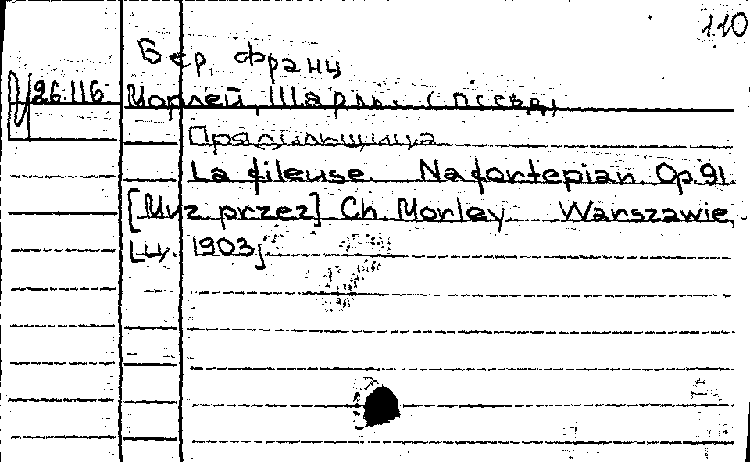 110
Бер, Франц
Ц 26.116 Морлей, Шарль (псевд)
Прядильщица
La fileuse. Na fortepian. Op. 91.
[Muz przez] Ch. Morley. Warszawie,
Ц. 1903,